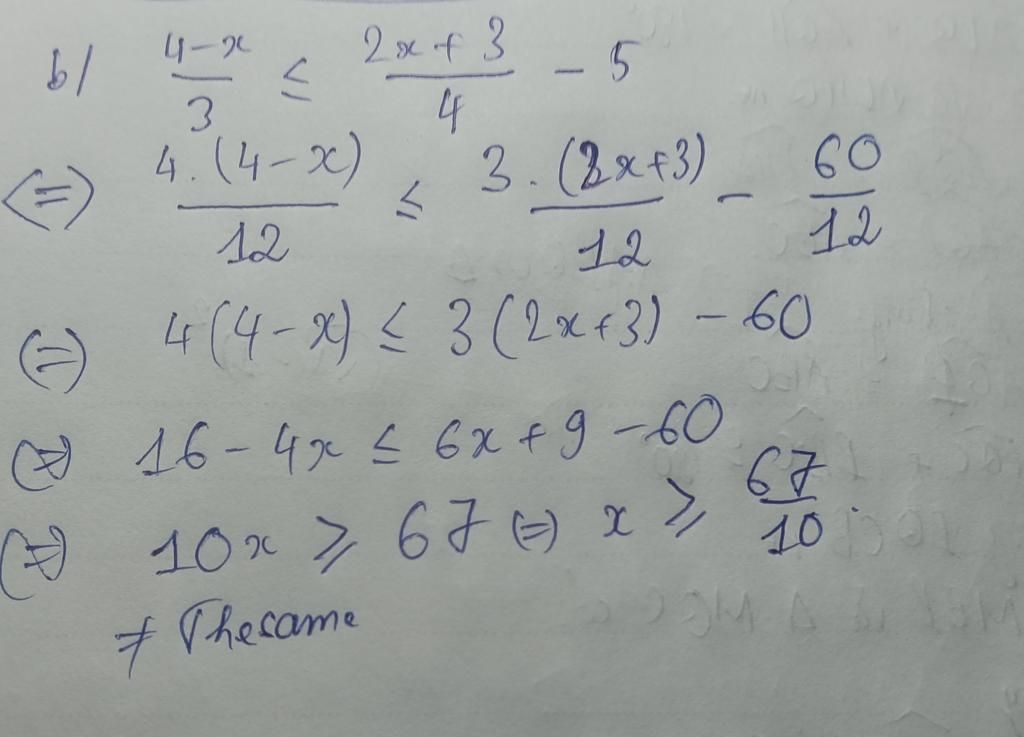 b/ (4-x)/3 ≤ (2x+3)/4 - 5
<=> 4.(4-x)/12 ≤ 3.(2x+3)/12 - 60/12
(=) 4(4-x) ≤ 3(2x+3) - 60
(=) 16-4x ≤ 6x+9-60
(=) 10x ≥ 67 (=) x ≥ 67/10.
≠ The same